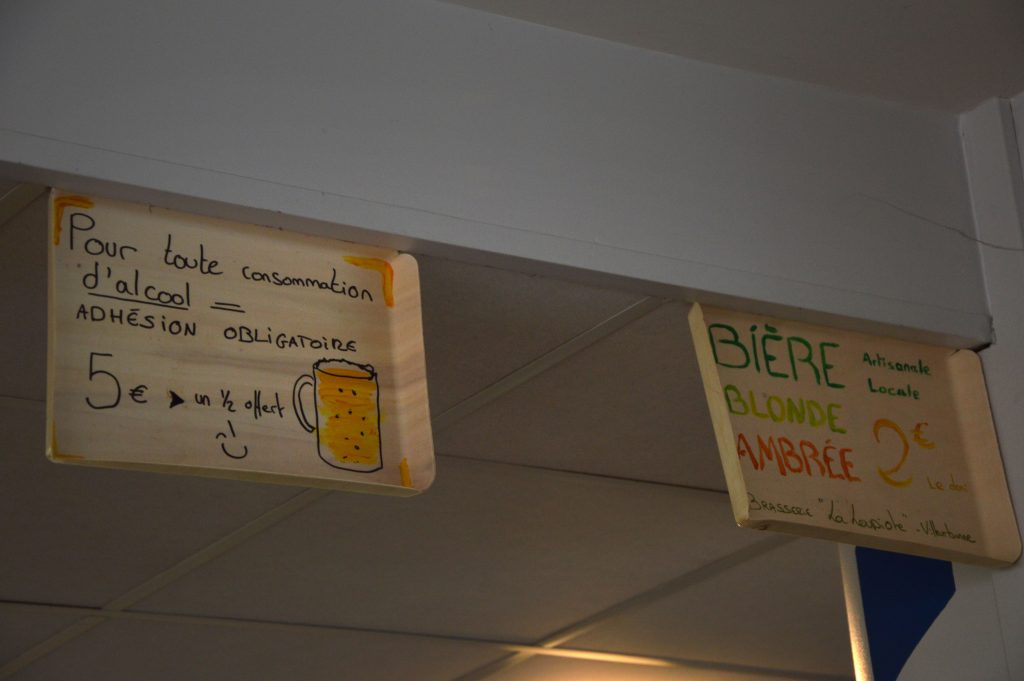 Pour toute consommation
d'alcool =
ADHÉSION OBLIGATOIRE
5€ ➤ un 1/2 offert
BIÈRE Artisanale
Locale
BLONDE
AMBRÉE 2€
Le
BRASSERIE "La" - Villeurbanne